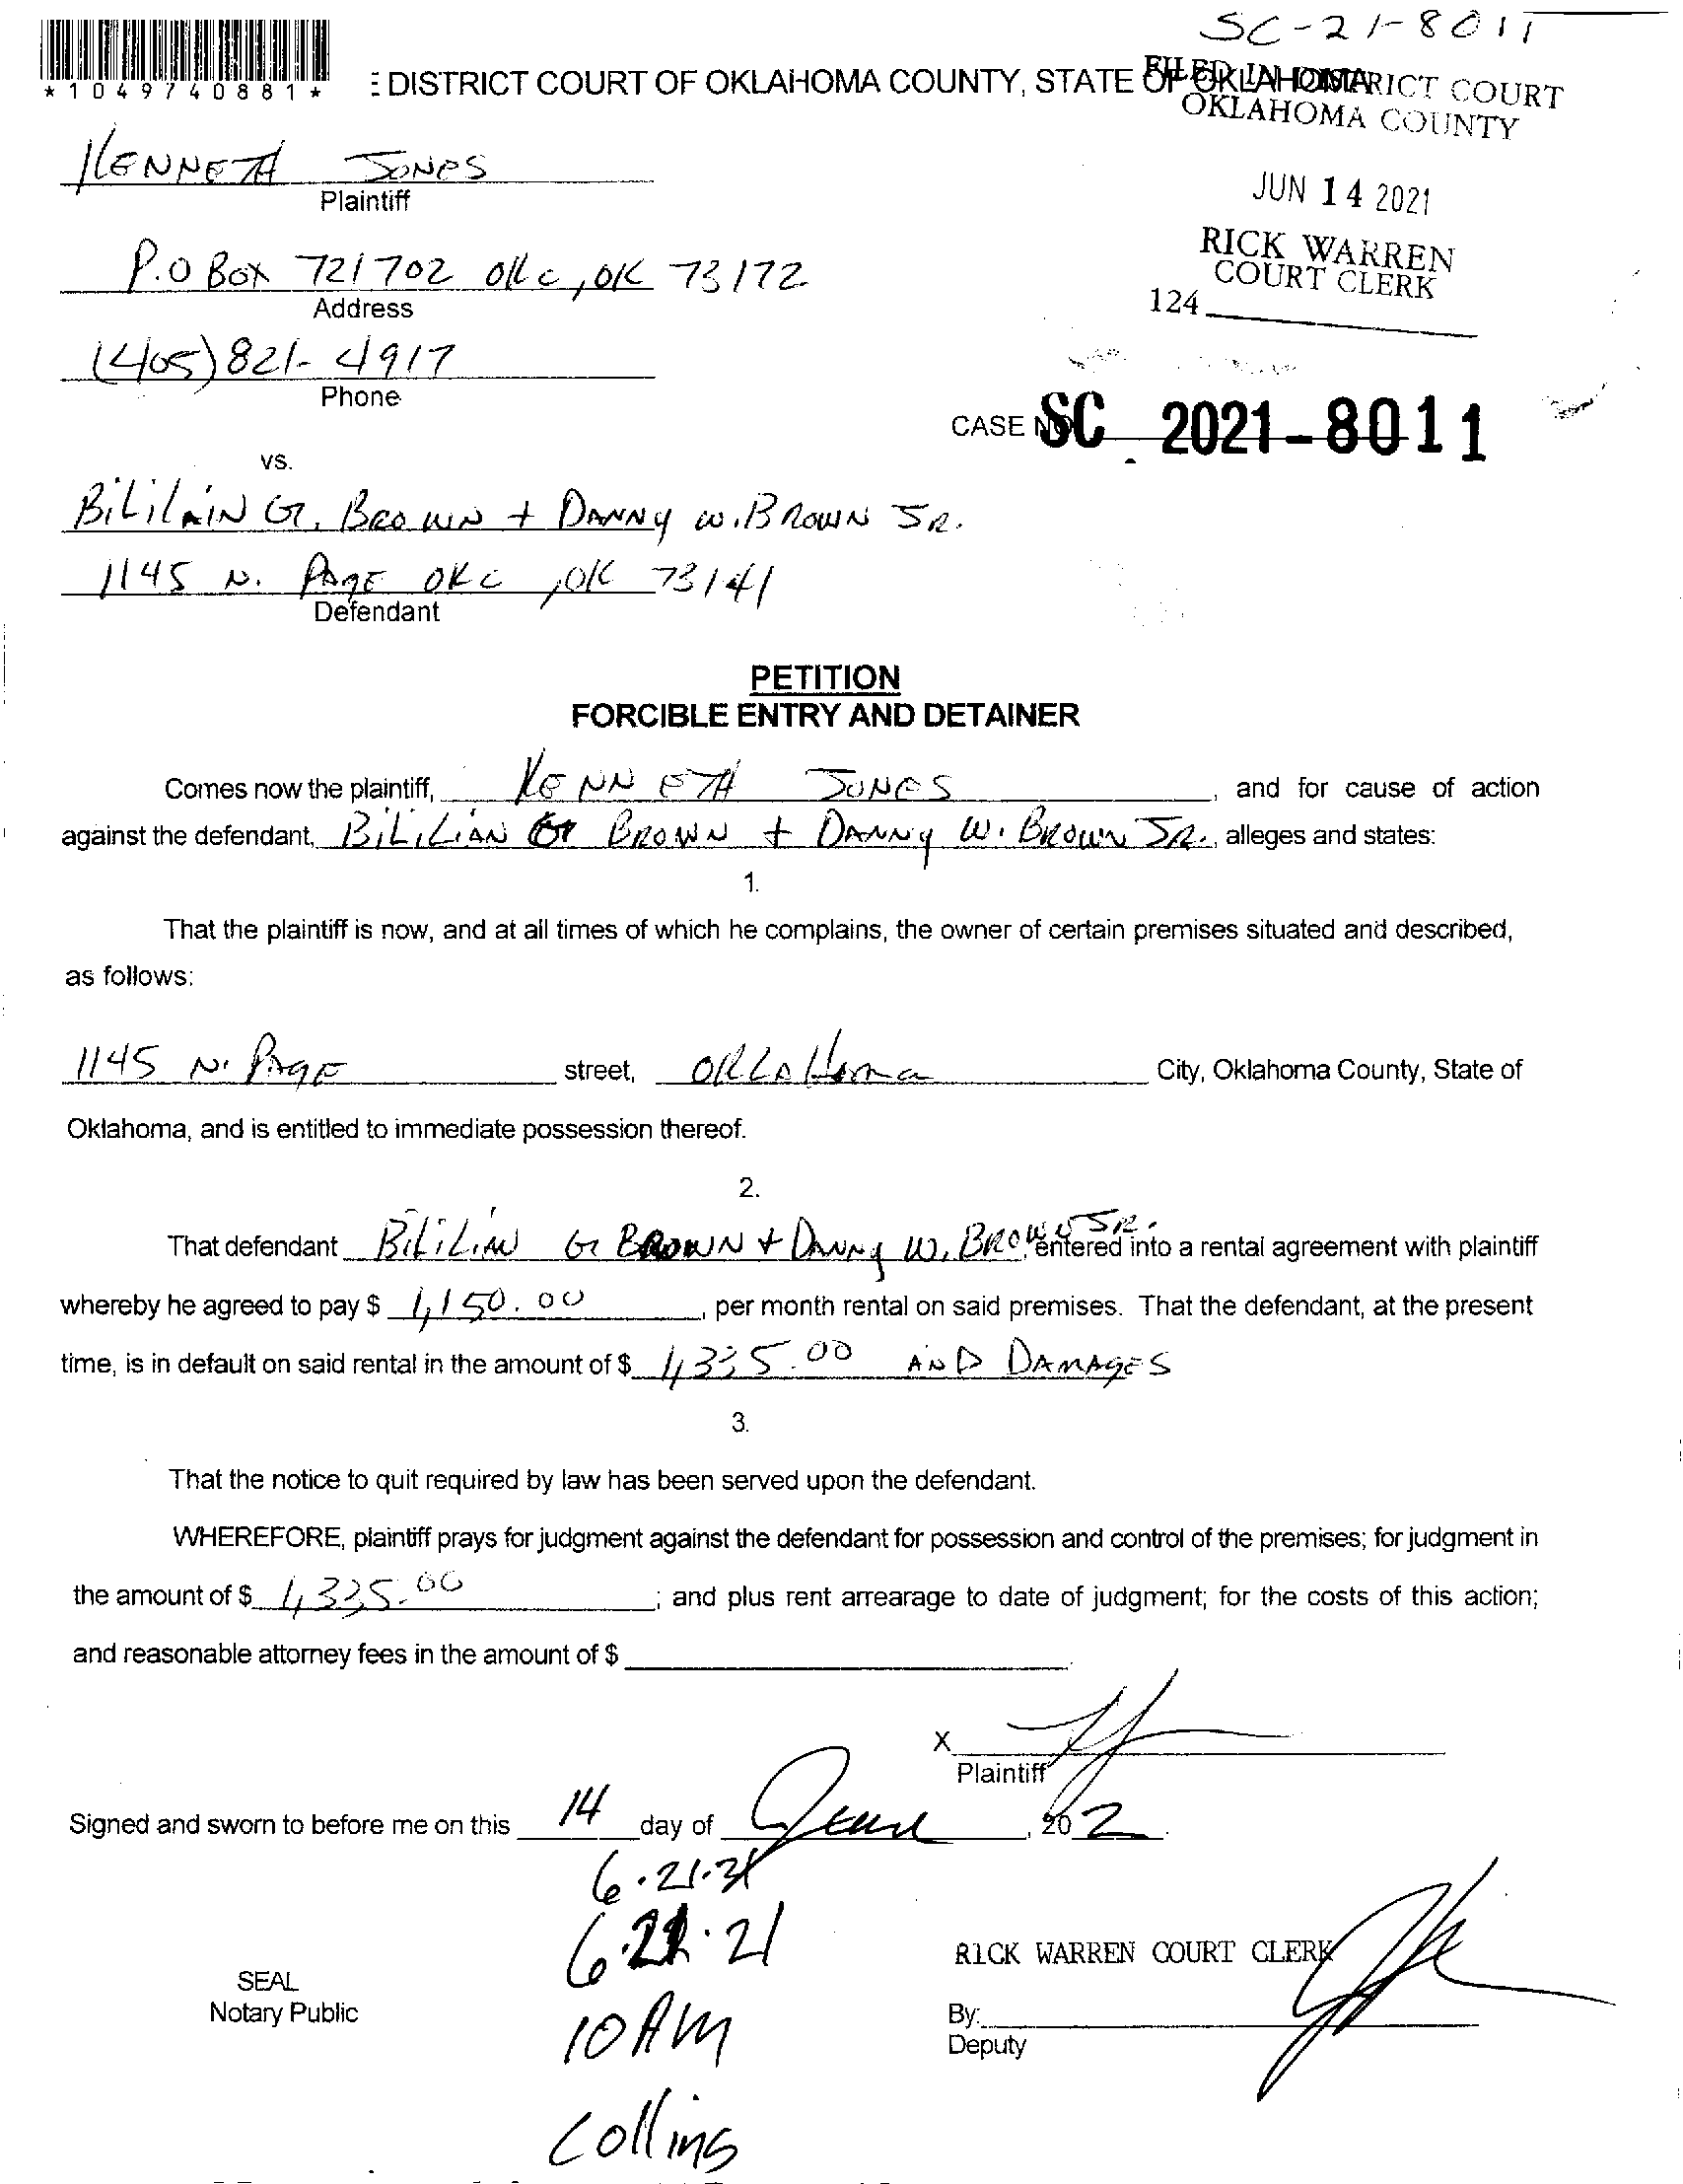 SC-21-8011
*1049740881*
E DISTRICT COURT OF OKLAHOMA COUNTY, STATE OF OKLAHOMA
FILED IN DISTRICT COURT
OKLAHOMA COUNTY
KENNETH JONES
Plaintiff
JUN 14 2021
RICK WARREN
COURT CLERK
124
P.O BOX 721702 OKC, OK 73172
Address
(405) 821-4917
Phone
CASE NO. SC 2021-8011
vs.
BiLiLAiN G. BROWN + DANNY W. BROWN JR.
1145 N. PAGE OKC, OK 73141
Defendant
PETITION
FORCIBLE ENTRY AND DETAINER
Comes now the plaintiff, KENNETH JONES, and for cause of action
against the defendant, BiLiLiAN G BROWN + DANNY W. BROWN JR., alleges and states:
1.
That the plaintiff is now, and at all times of which he complains, the owner of certain premises situated and described,
as follows:
1145 N. PAGE street, OKLAHoma City, Oklahoma County, State of
Oklahoma, and is entitled to immediate possession thereof.
2.
That defendant BiLiLiAN G BROWN + DANNY W. BROWN JR., entered into a rental agreement with plaintiff
whereby he agreed to pay $ 1,150.00, per month rental on said premises. That the defendant, at the present
time, is in default on said rental in the amount of $ 1,335.00 AND DAMAGES
3.
That the notice to quit required by law has been served upon the defendant.
WHEREFORE, plaintiff prays for judgment against the defendant for possession and control of the premises; for judgment in
the amount of $ 1,335.00; and plus rent arrearage to date of judgment; for the costs of this action;
and reasonable attorney fees in the amount of $
X
Plaintiff
Signed and sworn to before me on this 14 day of June, 202
6.21.21
6.21.21
10 AM
Collins
RICK WARREN COURT CLERK
SEAL
Notary Public
By:
Deputy